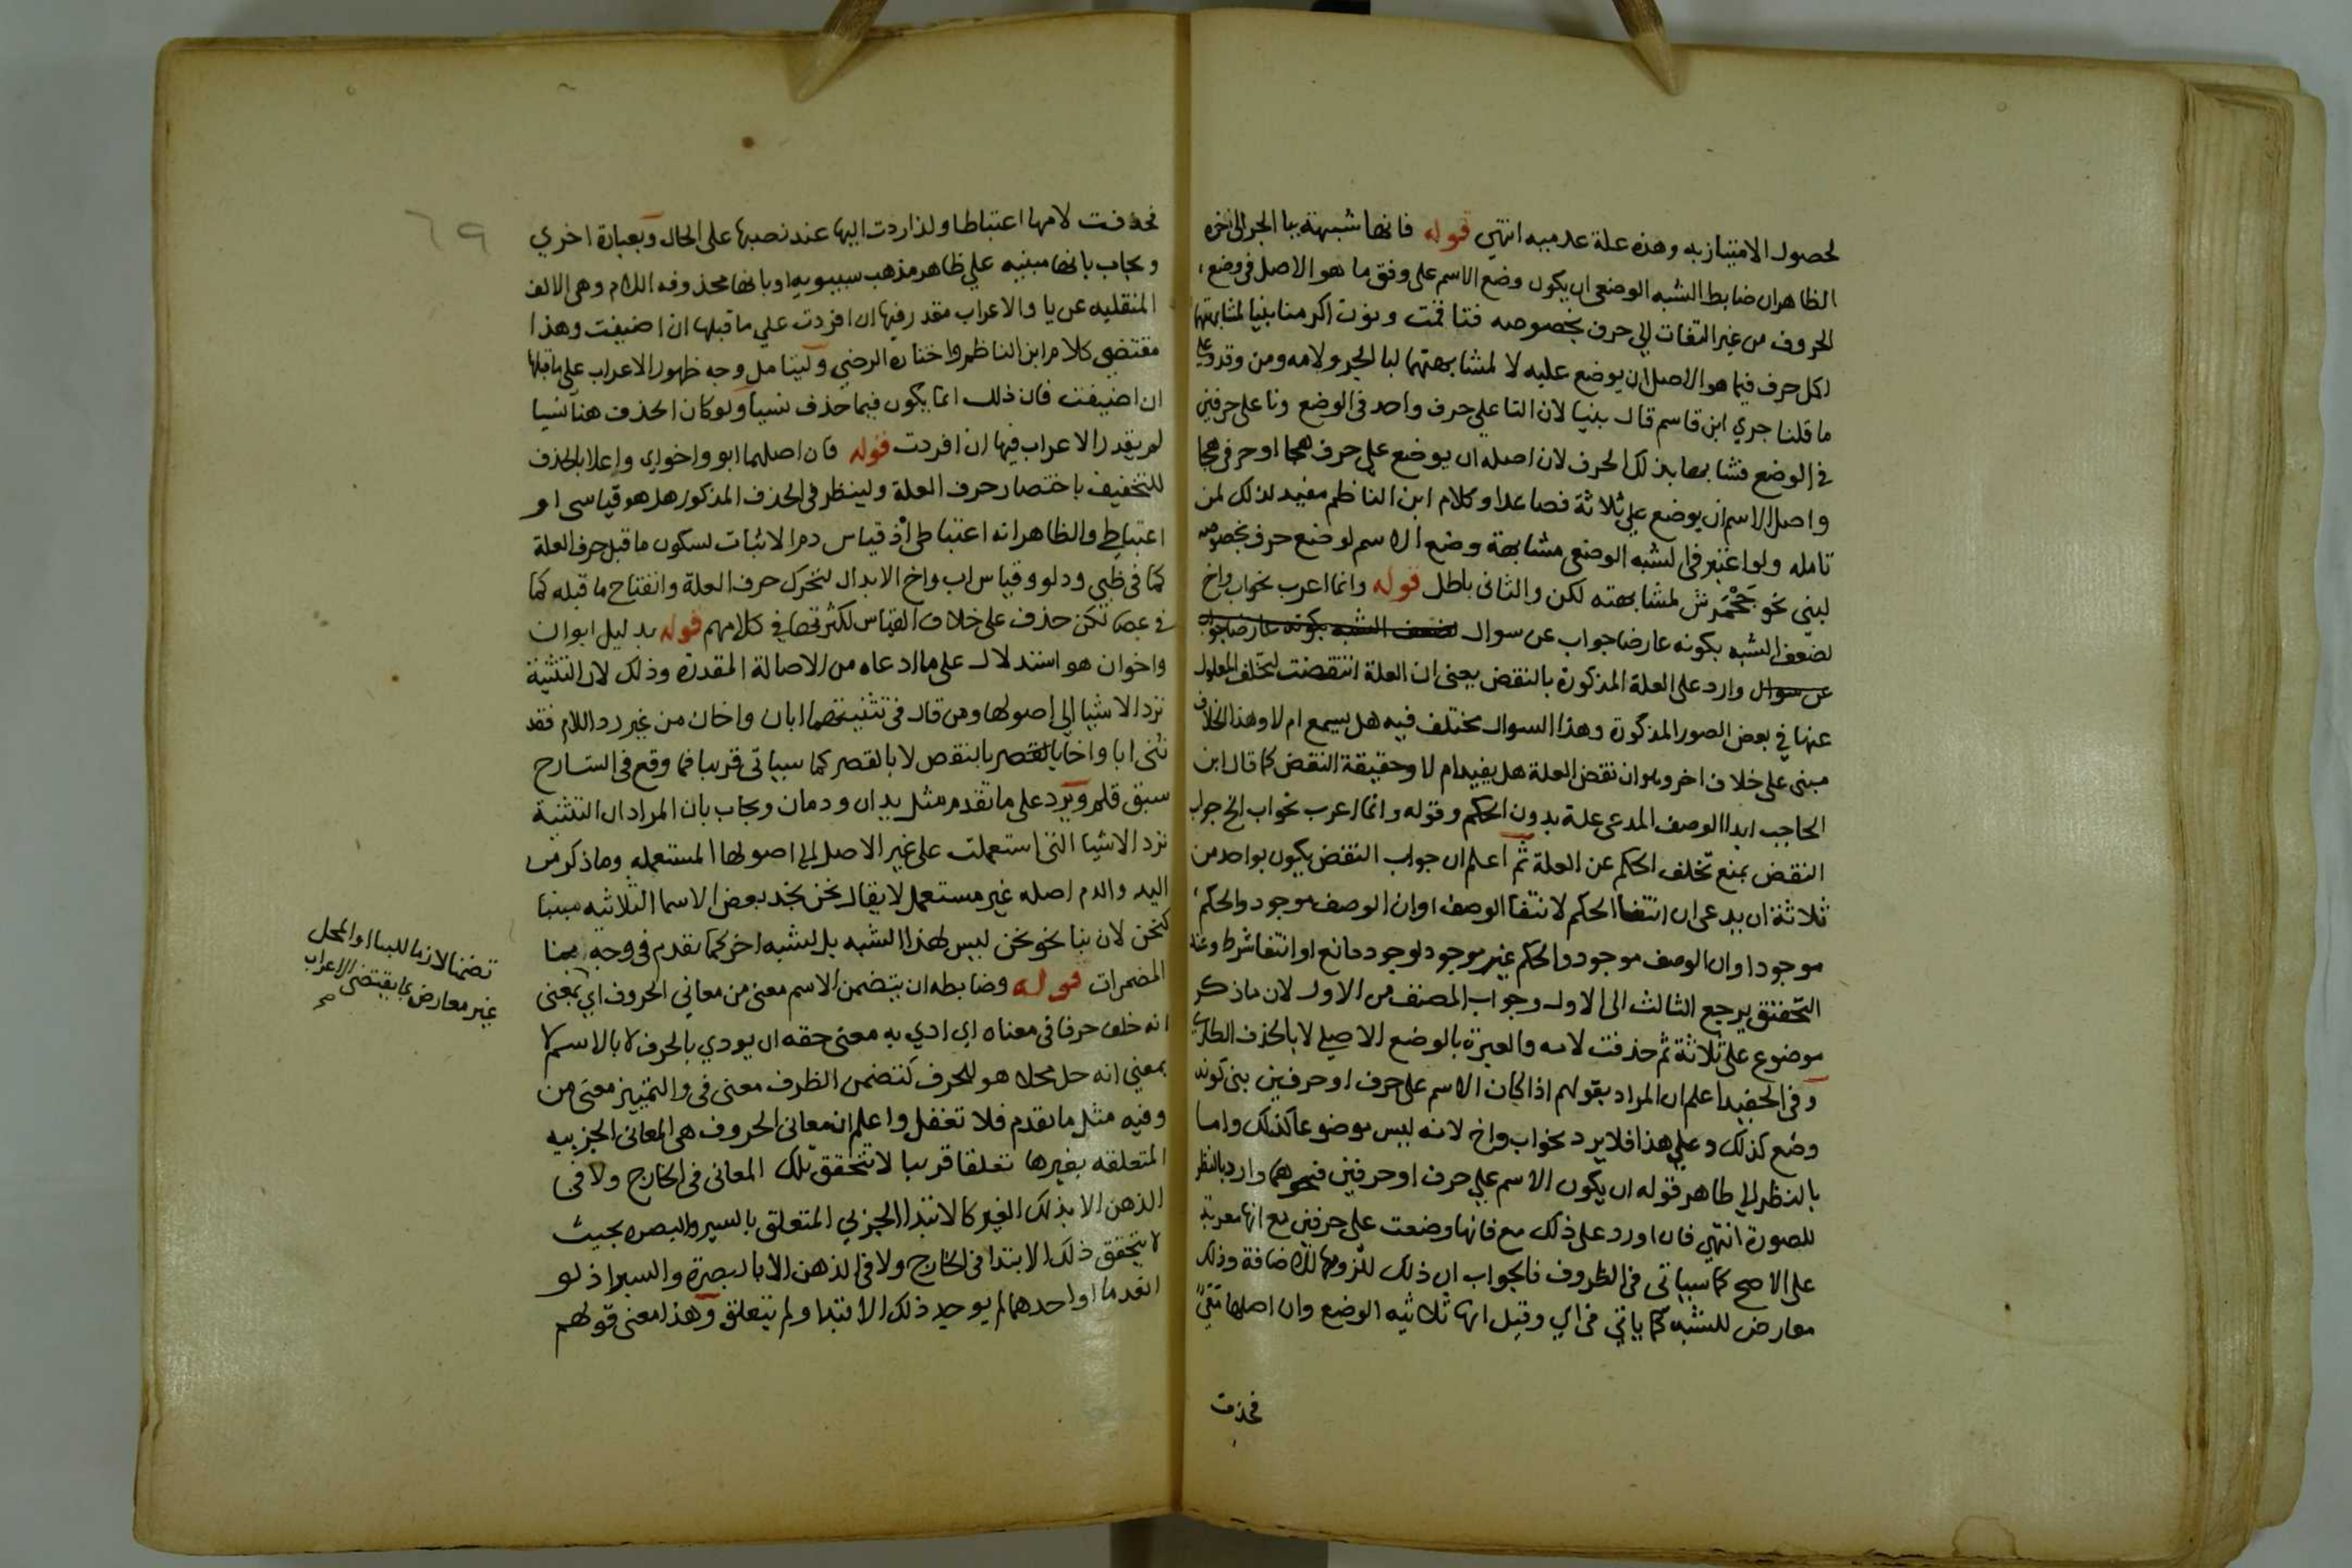 لحصول الامتياز به وهذه علة عدميه انتهي قوله فانها شبيهة ببا الجر الى اخره
الظاهران ضابط الشبه الوضعي ان يكون وضع الاسم على وفق ما هو الاصل في وضع
الحروف من غير التفات الي حرف بخصوصه فتا قمت ونون اكرمنا بنيا لمشابهتهما
لكل حرف فيما هو الاصل ان يوضع عليه لا لمشابهتهما لبا الجر ولامه ومن وقد وعلى
ما قلنا جري ابن قاسم قال بنيا لان التا علي حرف واحد في الوضع ونا على حرفين
في الوضع فشابها بذلك الحرف لان اصله ان يوضع علي حرف هجا او حرفي هجا
واصل الاسم ان يوضع علي ثلاثة فصاعدا وكلام ابن الناظم مفيد لذلك لمن
تامله ولو اعتبر في الشبه الوضعي مشابهة وضع الاسم لوضع حرف بخصوصه
لبني نحو جحمرش لمشابهته لكن والثاني باطل قوله وانما اعرب نحو اب واخ
لضعف الشبه بكونه عارضا جواب عن سوال لضعف الشبه بكونه عارضا جواب
عن سوال وارد على العلة المذكورة بالنقض يعني ان العلة انتقضت لتخلف المعلول
عنها في بعض الصور المذكورة وهذا السوال مختلف فيه هل يسمع ام لا وهذا الخلاف
مبنى على خلاف اخر وهو ان نقض العلة هل يفيد ام لا وحقيقة النقض كما قال ابن
الحاجب ابدا الوصف المدعى علة بدون الحكم وقوله وانما اعرب نحو اب الخ جواب
النقض بمنع تخلف الحكم عن العلة ثم اعلم ان جواب النقض يكون بواحد من
ثلاثة ان يدعى ان انتفا الحكم لانتفا الوصف او ان الوصف موجود والحكم
موجود او ان الوصف موجود والحكم غير موجود لوجود مانع او انتفا شرط وعند
التحقيق يرجع الثالث الى الاول وجواب المصنف من الاول لان ما ذكر
موضوع على ثلاثة ثم حذفت لامه والعبرة بالوضع الاصلي لا بالحذف الطاري
وفي الحفيد اعلم ان المراد بقولهم اذا كان الاسم على حرف او حرفين بني كونه
وضع كذلك وعلي هذا فلا يرد نحو اب واخ لانه ليس موضوعا كذلك واما
بالنظر الي ظاهر قوله ان يكون الاسم علي حرف او حرفين فنحوهما وارد بالنظر
للصورة انتهي فان اورد على ذلك مع فانها وضعت على حرفين مع انها معربة
على الاصح كما سياتي في الظروف فالجواب ان ذلك للزومها للاضافة وذلك
معارض للشبه كما ياتي في اي وقيل انها ثلاثيه الوضع وان اصلها معي
فحذفت
فحذفت لامها اعتباطا ولذا ردت اليها عند نصبها على الحال وبعبارة اخري
ويجاب بانها مبنيه علي ظاهر مذهب سيبويه او بانها محذوفه اللام وهي الالف
المنقلبه عن يا والاعراب مقدر فيها ان افردت علي ما قبلها ان اضيفت وهذا
مقتضي كلام ابن الناظم واختاره الرضي وليتامل وجه ظهور الاعراب على ما قبلها
ان اضيفت فان ذلك انما يكون فيما حذف نسيا ولو كان الحذف هنا نسيا
لم يقدر الاعراب فيها ان افردت قوله فان اصلهما ابو واخو اي واعلا بالحذف
للتخفيف باختصار حرف العلة ولينظر في الحذف المذكور هل هو قياسى او
اعتباطي والظاهر انه اعتباطى اذ قياس دم الاثبات لسكون ما قبل حرف العلة
كما في ظبي ودلو وقياس اب واخ الابدال لتحرك حرف العلة وانفتاح ما قبله كما
في عصا لكن حذف على خلاف القياس لكثرتها في كلامهم قوله بدليل ابوان
واخوان هو استدلال على ما ادعاه من الاصالة المقدرة وذلك لان التثنية
ترد الاشيا الى اصولها ومن قال في تثنيتهما ابان واخان من غير رد اللام فقد
ثنى ابا واخا بالقصر بالنقص لا بالقصر كما سياتي قريبا فما وقع في الشارح
سبق قلم ويرد على ما تقدم مثل يدان ودمان ويجاب بان المراد ان التثنية
ترد الاشيا التي استعملت على غير الاصل الي اصولها المستعمله وما ذكر من
اليد والدم اصله غير مستعمل لا يقال نحن نجد بعض الاسما الثلاثيه مبنيا
كنحن لان بنا نحو نحن ليس لهذا الشبه بل لشبه اخر كما تقدم في وجه بنا
المضمرات قوله وضابطه ان يتضمن الاسم معنى من معاني الحروف اي بمعنى
انه خلف حرفا في معناه اي ادي به معنى حقه ان يودي بالحرف لا بالاسم لا
بمعني انه حل محلا هو للحرف كتضمن الظرف معنى في والتمييز معنى من
وفيه مثل ما تقدم فلا تغفل واعلم ان معاني الحروف هي المعاني الجزييه
المتعلقه بغيرها تعلقا قريبا لا تتحقق تلك المعاني في الخارج ولا في
الذهن الا بذلك الغير كالابتدا الجزيي المتعلق بالسير والبصره بحيث
لا يتحقق ذلك الابتدا في الخارج ولا في الذهن الا بالبصرة والسير اذ لو
انعدما او احدهما لم يوجد ذلك الابتدا ولم يتعلق وهذا معنى قولهم
تضمنا لازما للبنا او المحل
غير معارض بما يقتضى الاعراب
صح
٦٩